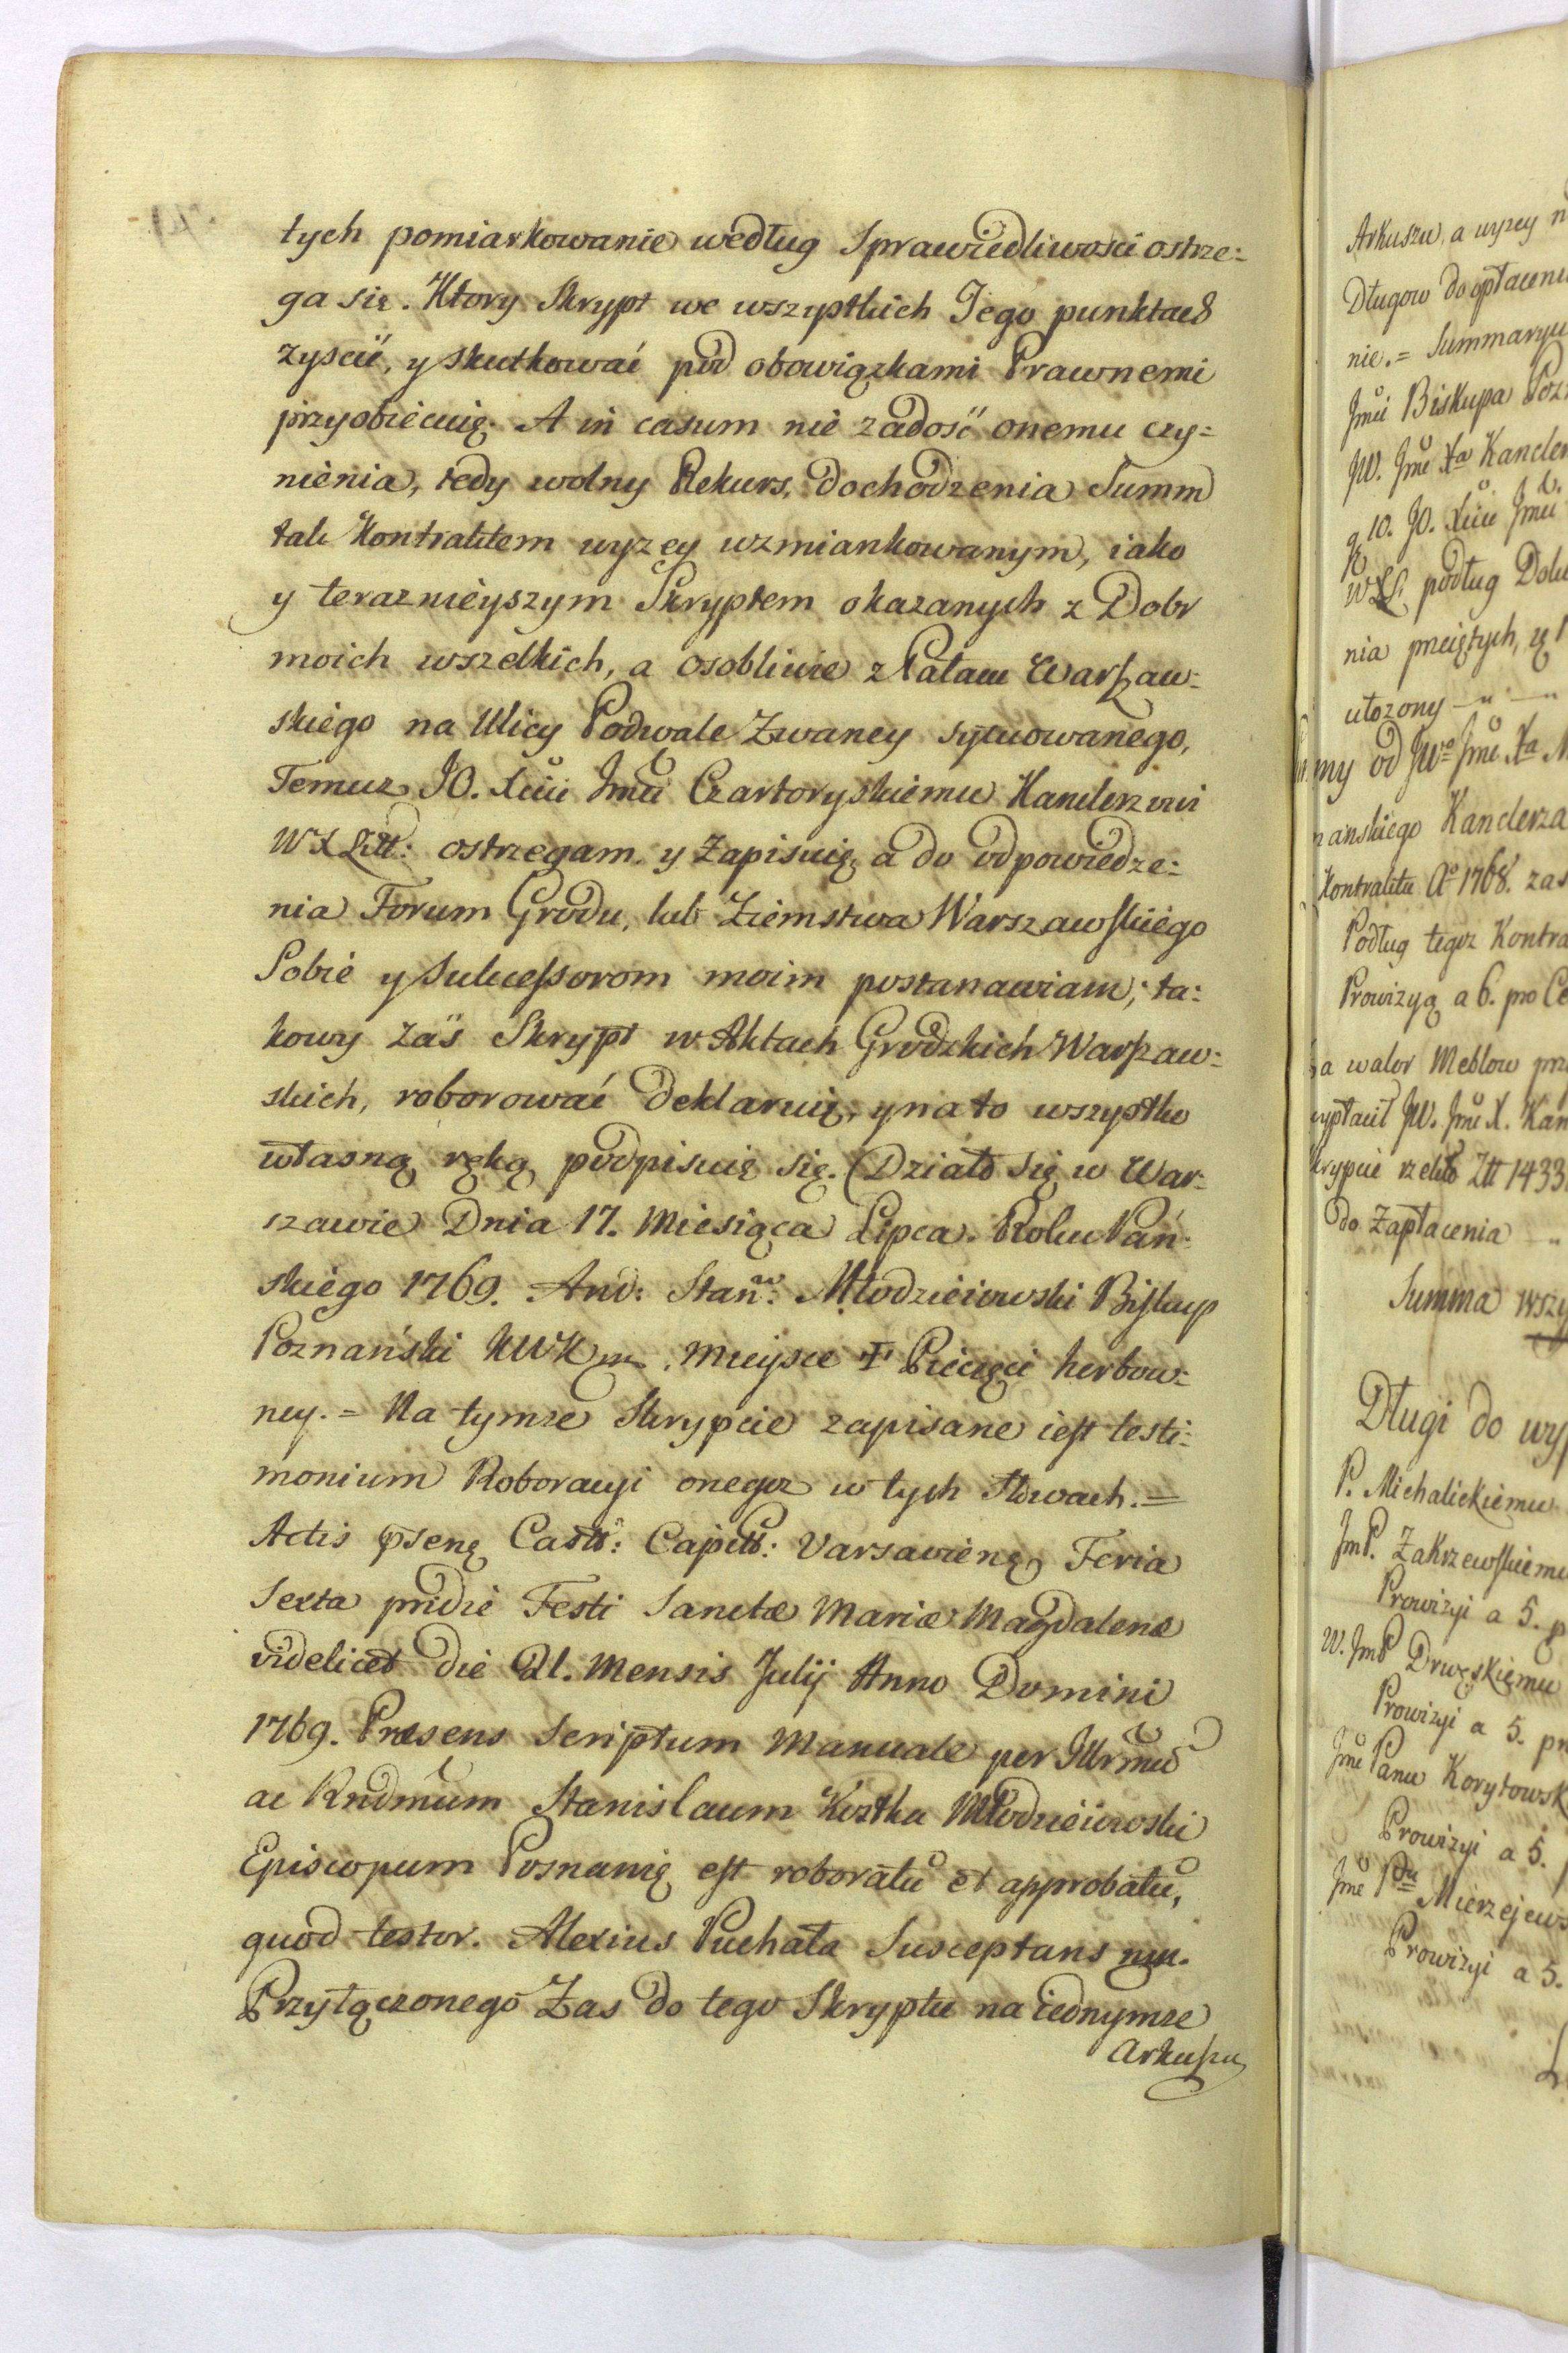 tych pomiarkowanie według Sprawiedliwości ostrze=
ga się. Ktory Skrypt we wszystkich Jego punktach
zyscić, y skutkować pod obowiązkami Prawnemi
przyobiecuię. A in casum nie zadość onemu czy=
nienia, tedy wolny Rekurs, dochodzenia Summ
tak Kontraktem wyzey wzmiankowanym, iako
y teraznieyszym Skryptem okazanych z Dobr
moich wszelkich, a osobliwie z Pałacu Warszaw=
skiego na Ulicy Podwale Zwaney sytuowanego,
Temuz JO. Xciu Jmci Czartoryskiemu Kanclerzowi
WXLitt: ostrzegam y Zapisuię, a do odpowiedze=
nia Forum Grodu, lub Ziemstwa Warszawskiego
Sobie y Sukcessorom moim postanawiam; ta=
kowy Zaś Skrypt w Aktach Grodzkich Warszaw=
skich, roborować deklaruię, y na to wszystko
własną ręką podpisuię się. Działo się w War=
szawie Dnia 17. Miesiąca Lipca. Roku Pań=
skiego 1769. And: Stanw: Młodzieiowski Biskup
Poznański KWK mp. Mieysce ✝ Pieczęci herbow=
ney. = Na tymze Skrypcie zapisane iest testi=
monium Roboracyi onegoz w tych Słowach. =
Actis psenę Castr: Capitt: Varsavienę Feria
Sexta pridie Festi Sanctæ Mariæ Magdalenæ
videlicet die 21. Mensis Julij Anno Domini
1769. Præsens Scriptum Manuale per Illrmũ
ac Rndmum Stanislaum Kostka Młodzieiowski
Episcopum Posnanię est roboratũ et approbatũ,
quod testor. Alexius Puchała Susceptans mp.
Przyłączonego Zas do tego Skryptu na iednymze
Arkuszu
Arkuszu, a wyzey
Długow do opłaceni
nie. = Summaryu
Jmci Biskupa Poz
JW. Jmc Xa Kancler
10. JO. Xciu Jmci
WXL podług Doku
nia
ułozony
my od JWo Jmc Xa M
nanskiego Kanclerza
Kontraktu Ao 1768. zas
Podług tegoz Kontra
Prowizyą a 6. pro Ce
a walor Meblow prz
wypłacił JW. Jmc X. Kan
krypcie rzekło Ztt 1433
do Zapłacenia
Summa wszy
Długi do wyp
P. Michalickiemu
JmP. Zakrzewskiemu
Prowizyi a 5. p
W. JmP Drwęskiemu
Prowizyi a 5. pr
Jmc Panu Korytowsk
Prowizyi a 5.
Jmc Pnu Mierzejews
Prowizyi a 5.